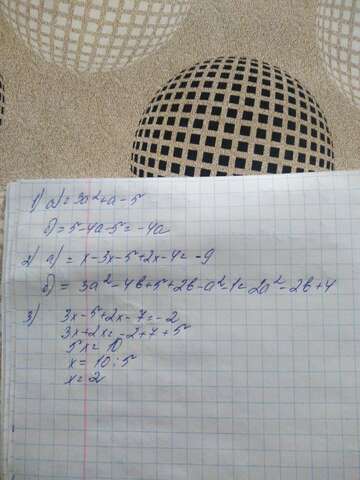 1) а) = 3a²+a-5
б) = 5-4a-5 = -4a
2) а) = x-3x-5+2x-4 = -9
б) = 3a²-4b+5+2b-a²-1 = 2a²-2b+4
3) 3x-5+2x-7=-2
3x+2x=-2+7+5
5x=10
x=10:5
x=2